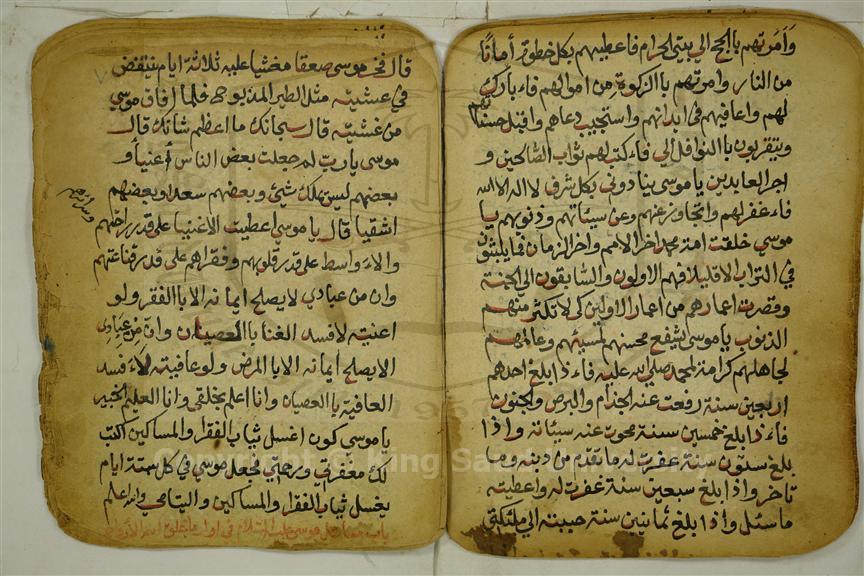 وأمرتهم بالحج الي بيتي الحرام فاعطيهم بكل خطوة أمانًا
من النار وامرتهم بالزكوة من اموالهم فاء بارك
لهم واعافيهم في ابدانهم واستجيب دعاهم واقبل حسناتهم
ويتقربون باالنوافل الي فاء كتب لهم ثواب الصالحين و
اجر العابدين ياموسي ينادوني بكل شرف لا اله الا الله
فاء غفر لهم واتجاوز عنهم وعن سيئاتهم وذنوبهم يا
موسي خلقت امة محمد اخر الامم واخر الزمان فمايلبثون
في التراب الا قليلا فهم الاولون والسابقون الي الجنة
وقصرت اعمارهم من اعمار الاولين كي لا تكثر منهم
الذنوب ياموسي يشفع محسنهم لمسيئهم وعالمهم
لجاهلهم كرامة لمحمد صلي الله عليه فاء ذا بلغ احدهم
اربعين سنة رفعت عنه الجذام والبرص والجنون
فاء ذا بلغ خمسين سنة محوت عنه سيئاته واذا
بلغ ستون سنة غفرت له ماتقدم من ذنبه وما
تاخر واذا بلغ سبعين سنة غفرت له واعطيته
ماسئل واذا بلغ ثمانين سنة حببته الي ملئكتي
قال فخر موسي صعقا مغشيا عليه ثلاثة ايام ينتفض
في عشيته مثل الطير المذبوحه فلما افاق موسي
من غشيته قال سبحانك ما اعظم شانك قال
موسي يارب لم جعلت بعض الناس أغنيأ و
بعضهم ليس يملك شيئ وبعضهم سعداو بعضهم
اشقيا قال ياموسي اعطيت الاغنيا علي قدر
والاء واسط علي قدر قلوبهم وفقراهم علي قدر قناعتهم
وان من عبادي لا يصلح ايمانه الا باالفقر ولو
اغنيته لافسد الغنا باالعصيان وان من عبادي
الا يصلح أيمانه الا با المرض ولو عافيته لاء فسد
العافية باالعصيان وانا اعلم بخلقي وانا العليم الخبير
ياموسي كون اغسل ثياب الفقرا والمساكين اكتب
لك مغفرتي ورحمتي فجعل موسي في كل ستة ايام
يغسل ثياب الفقرا والمساكين واليتامي والله اعلم
باب موسي عليه السلام في
Copyright © King Saud University
1957